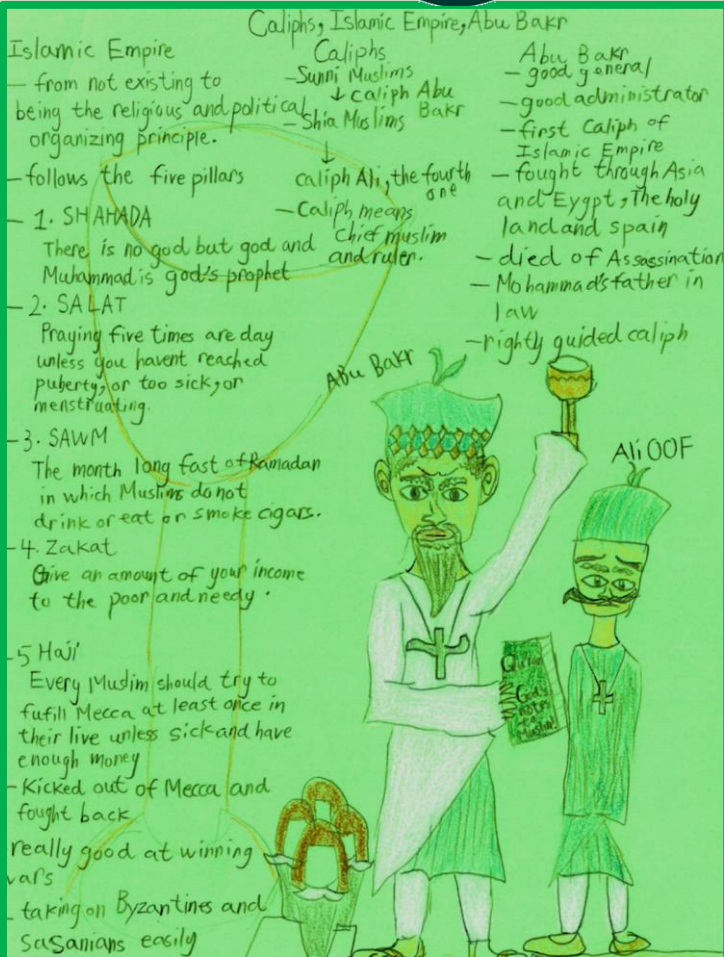 Caliphs, Islamic Empire, Abu Bakr
Islamic Empire
- from not existing to
being the religious and political
organizing principle.
- follows the five pillars
- 1. SHAHADA
There is no god but god and
Muhammad is god's prophet
- 2. SALAT
Praying five times are day
unless you havent reached
puberty, or too sick, or
menstruating.
- 3. SAWM
The month long fast of Ramadan
in which Muslims do not
drink or eat or smoke cigars.
- 4. Zakat
Give an amount of your income
to the poor and needy.
- 5 Hajj
Every Muslim should try to
fufill Mecca at least once in
their live unless sick and have
enough money
- Kicked out of Mecca and
fought back
really good at winning
wars
- taking on Byzantines and
Sasanians easily
Caliphs
- Sunni Muslims
↓ caliph Abu
Bakr
- Shia Muslims
↓
caliph Ali, the fourth
one
- Caliph means
chief muslim
and ruler.
Abu Bakr
- good general
- good administrator
- first Caliph of
Islamic Empire
- fought through Asia
and Eygpt, The holy
land and spain
- died of Assassination
- Mohammad's father in
law
- rightly guided caliph
Abu Bakr
Ali OOF
Quran
God's
notes
to
Muslim